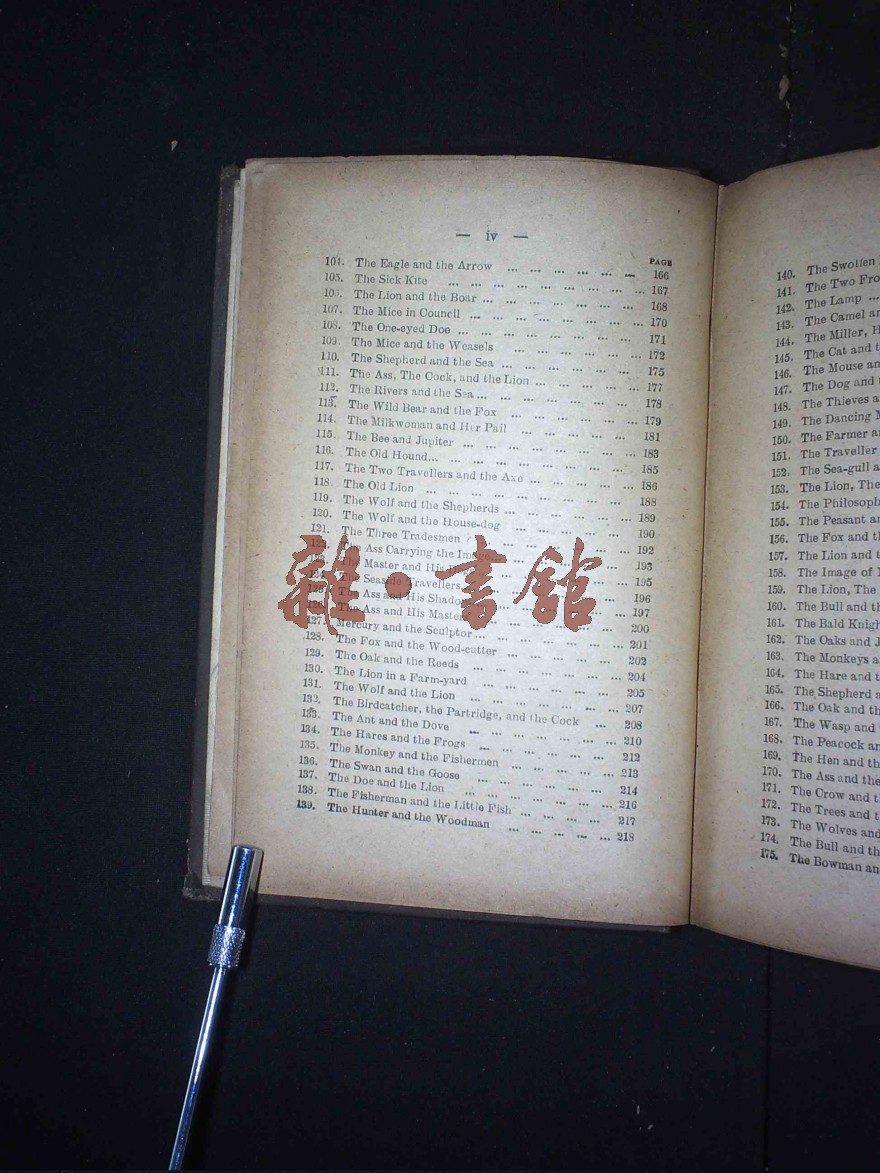 — iv —
PAGE
104. The Eagle and the Arrow ... ... ... ... ... ... 166
105. The Sick Kite ... ... ... ... ... ... ... ... 167
106. The Lion and the Boar ... ... ... ... ... ... 168
107. The Mice in Council ... ... ... ... ... ... ... 170
108. The One-eyed Doe ... ... ... ... ... ... ... 171
109. The Mice and the Weasels ... ... ... ... ... 172
110. The Shepherd and the Sea ... ... ... ... ... ... 175
111. The Ass, The Cock, and the Lion ... ... ... ... ... 177
112. The Rivers and the Sea ... ... ... ... ... ... ... 178
113. The Wild Bear and the Fox ... ... ... ... ... 179
114. The Milkwoman and Her Pail ... ... ... ... ... 181
115. The Bee and Jupiter ... ... ... ... ... ... ... 183
116. The Old Hound... ... ... ... ... ... ... ... 185
117. The Two Travellers and the Axe ... ... ... ... ... 186
118. The Old Lion ... ... ... ... ... ... ... ... 188
119. The Wolf and the Shepherds ... ... ... ... ... 189
120. The Wolf and the House-dog ... ... ... ... ... 190
121. The Three Tradesmen ... ... ... ... ... ... ... 192
The Ass Carrying the Image... ... ... ... ... ... 193
The Master and His ... ... ... ... ... ... 195
The Seaside Travellers ... ... ... ... ... ... 196
The Ass and His Shadow ... ... ... ... ... ... 197
126. The Ass and His Masters ... ... ... ... ... ... 200
127. Mercury and the Sculptor ... ... ... ... ... ... 201
128. The Fox and the Wood-cutter ... ... ... ... ... 202
129. The Oak and the Reeds ... ... ... ... ... ... 204
130. The Lion in a Farm-yard ... ... ... ... ... ... 205
131. The Wolf and the Lion ... ... ... ... ... ... 207
132. The Birdcatcher, the Partridge, and the Cock ... 208
133. The Ant and the Dove ... ... ... ... ... ... 210
134. The Hares and the Frogs ... ... ... ... ... 212
135. The Monkey and the Fishermen ... ... ... ... ... 213
136. The Swan and the Goose ... ... ... ... ... 214
137. The Doe and the Lion ... ... ... ... ... ... 216
138. The Fisherman and the Little Fish ... ... ... ... 217
139. The Hunter and the Woodman ... ... ... ... ... 218
雜·書館
140. The Swollen
141. The Two
142. The Lamp ...
143. The Camel
144. The Miller,
145. The Cat and
146. The Mouse
147. The Dog and
148. The Thieves
149. The Dancing
150. The Farmer
151. The Traveller
152. The Sea-gull
153. The Lion, The
154. The
155. The Peasant
156. The Fox and
157. The Lion and
158. The Image of
159. The Lion, The
160. The Bull and
161. The Bald
162. The Oaks and
163. The Monkeys
164. The Hare and
165. The Shepherd
166. The Oak and
167. The Wasp and
168. The Peacock
169. The Hen and
170. The Ass and
171. The Crow and
172. The Trees and
173. The Wolves and
174. The Bull and
175. The Bowman